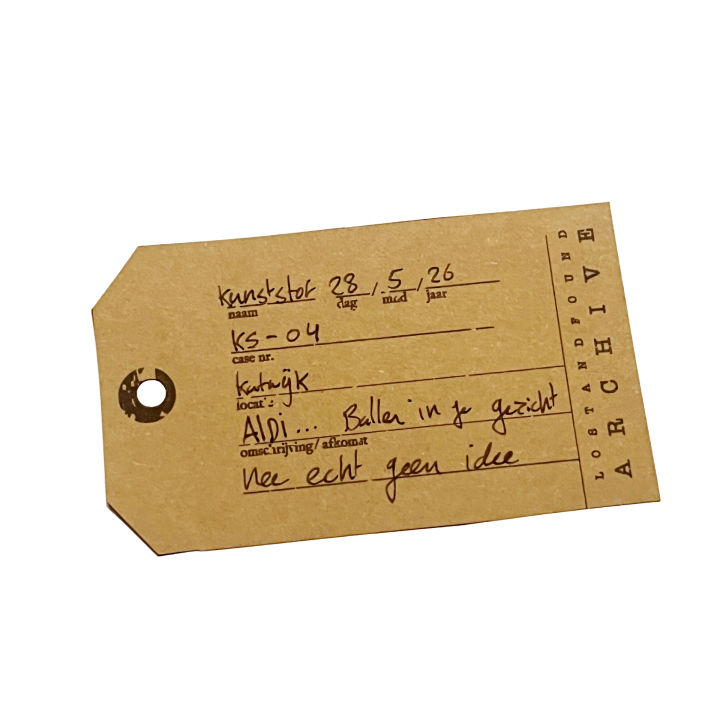 kunststof 28 / 5 / 26
naam dag mnd jaar
KS-04
case nr.
Katwijk
locatie
Aldi... Ballen in je gezicht
omschrijving / afkomst
Nee echt geen idee
LOSTANDFOUND
ARCHIVE